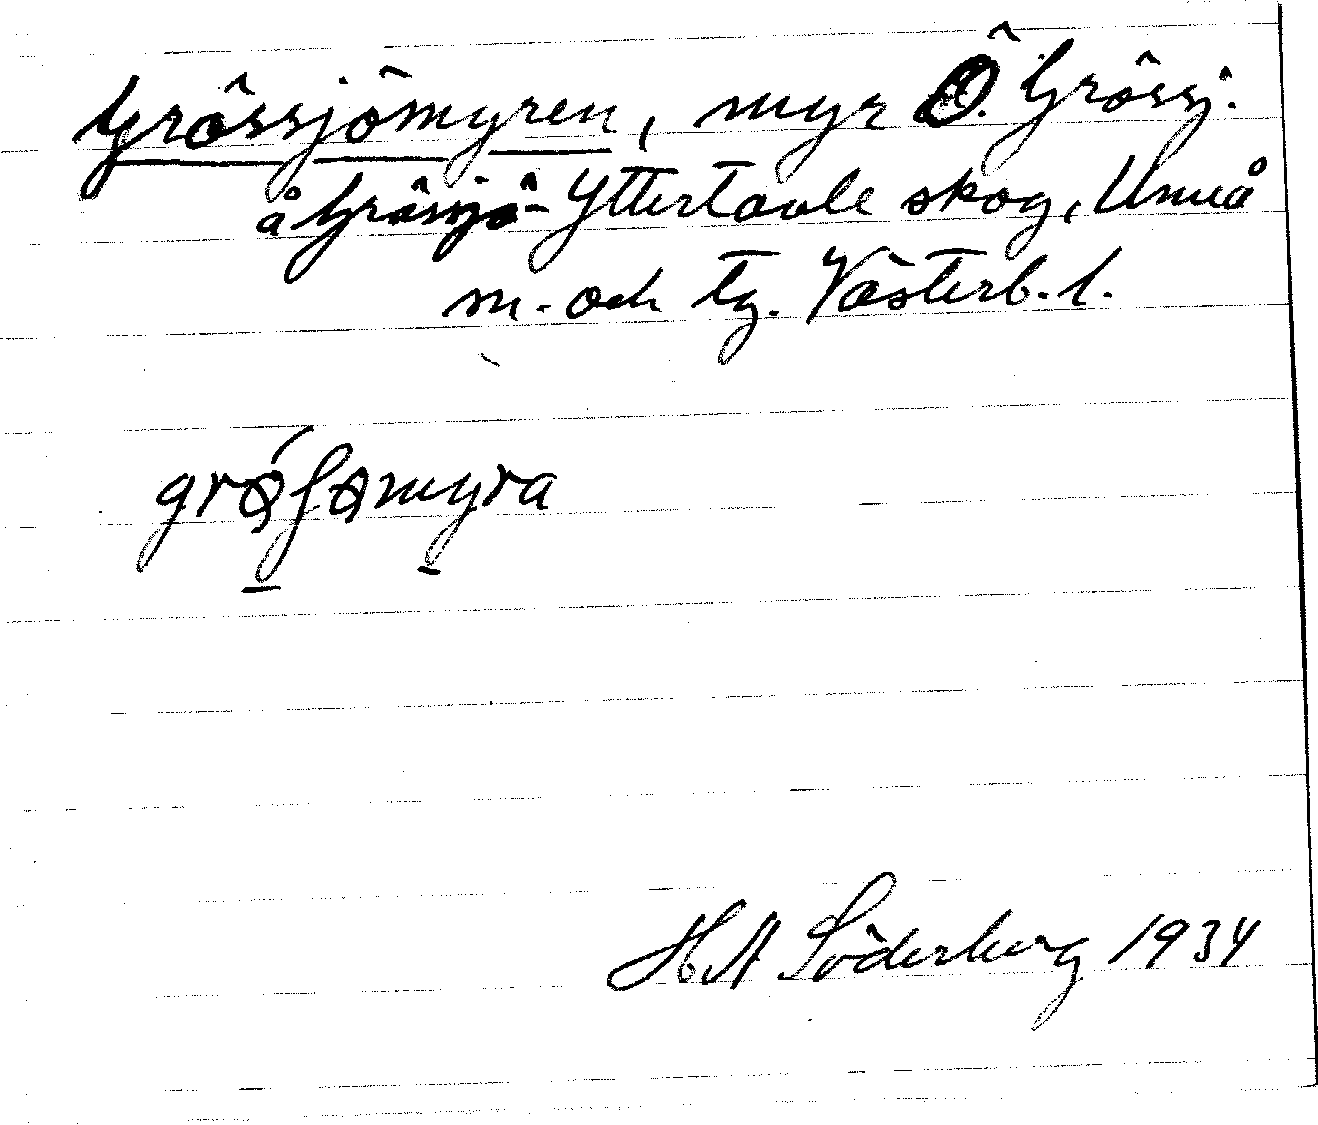 Grössjömyren, myr Ö. Grössj.
å Grössjö- Yttertavle skog, Umeå
m. och tg. Västerb. l.
HA Söderberg 1934